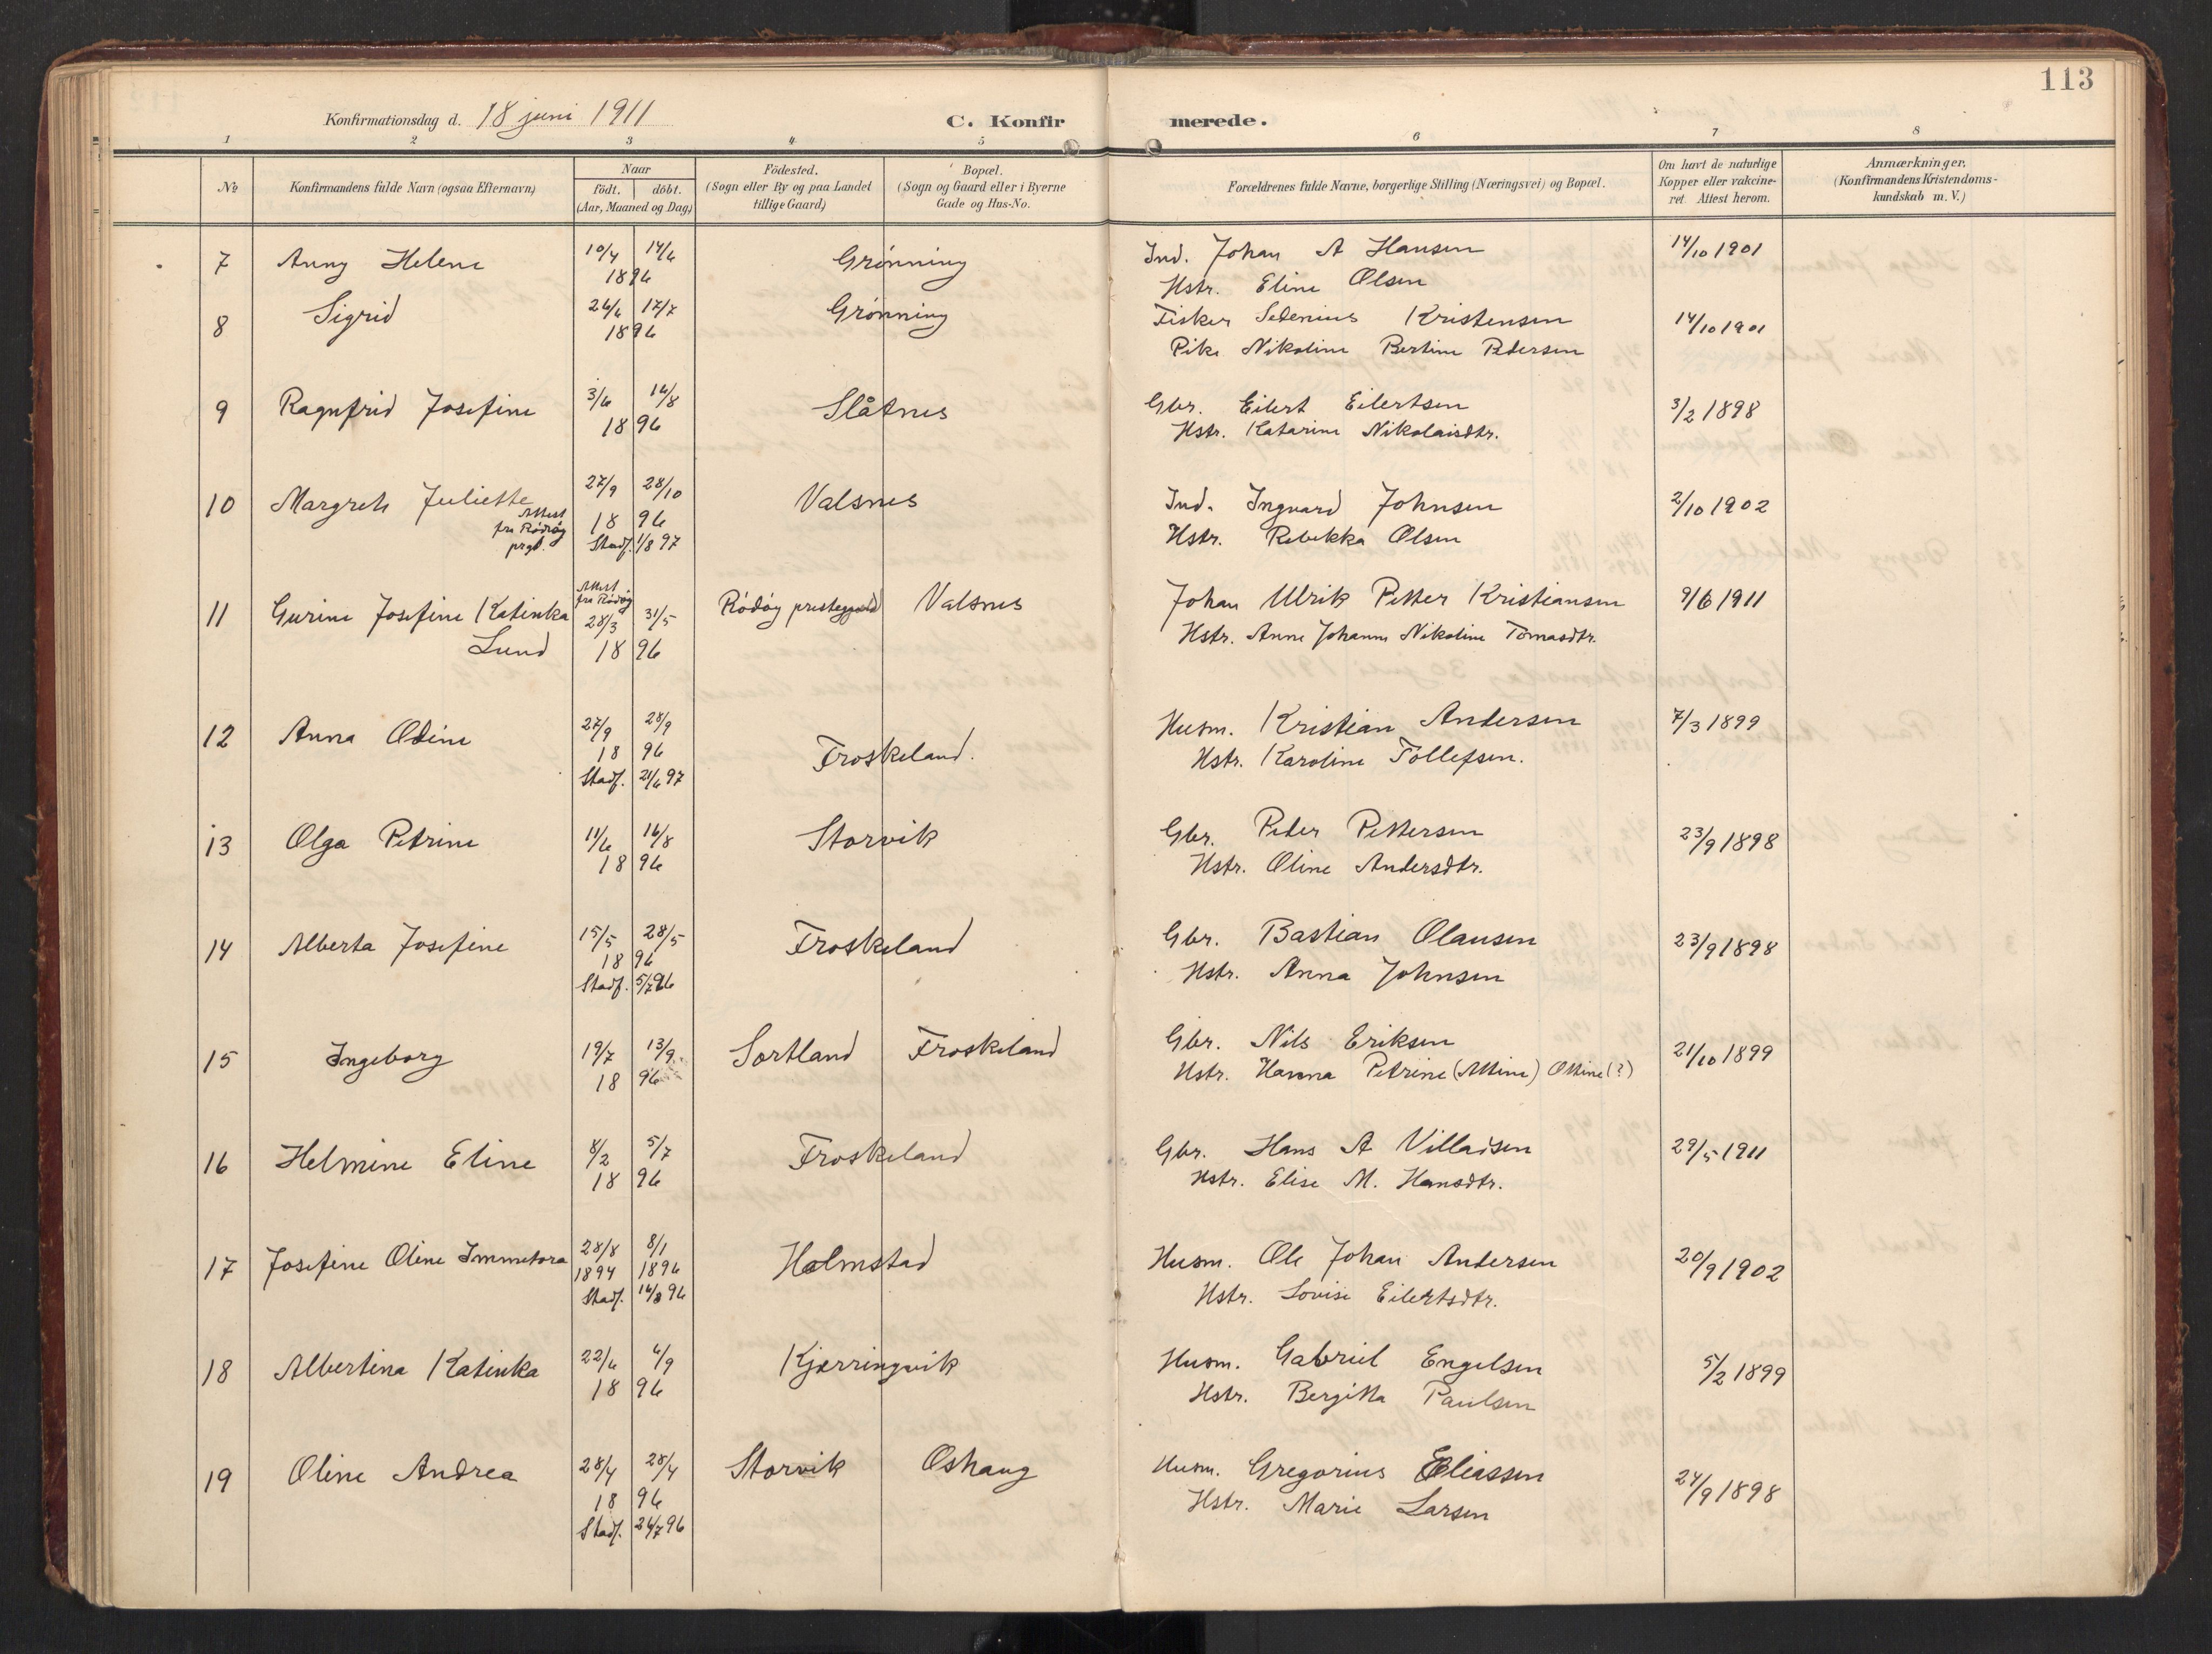 113
Konfirmationsdag d. 18 juni 1911
C. Konfirmerede.
1 2 3 4 5 6 7 8
№
Konfirmandens fulde Navn (ogsaa Efternavn)
Naar
födt. döbt.
(Aar, Maaned og Dag)
Födested.
(Sogn eller By og paa Landet
tillige Gaard)
Bopæl.
(Sogn og Gaard eller i Byerne
Gade og Hus-No.
Forældrenes fulde Navne, borgerlige Stilling (Næringsvei) og Bopæl.
Om havt de naturlige
Kopper eller vakcine-
ret. Attest herom.
Anmærkninger,
(Konfirmandens Kristendoms-
kundskab m. V.)
7 Anny Helene 10/4 14/6 Grønning Ind. Johan A Hansen 14/10 1901
1896 Hstr. Eline Olsen
8 Sigrid 26/6 17/7 Grønning Fisker Sedenius Kristensen 14/10 1901
1896 Pike Nikoline Bertine Pedersen
9 Ragnfrid Josefine 3/6 16/8 Slåtnes Gbr. Eilert Eilertsen 3/2 1898
1896 Hstr. Katarine Nikolaisdtr.
10 Margreh Juliette 27/9 28/10 Valsnes Ind. Ingvard Johnsen 2/10 1902
Attest
fra Rödöy 1896 Hstr. Rebekka Olsen
prgd. Stadf. 1/8 97
Attest
fra Rödöy
11 Gurine Josefine Katinka 28/3 31/5 Rödöy prestegjæld Valsnes Johan Ulrik Petter Kristiansen 9/6 1911
Lund 1896 Hstr. Anne Johanne Nikoline Tomasdtr.
12 Anna Odine 27/9 28/9 Froskeland. Husm. Kristian Andersen 7/3 1899
1896 Hstr. Karoline Tollefsen.
Stadf. 21/6 97
13 Olga Petrine 11/6 16/8 Storvik Gbr. Peder Pettersen 23/9 1898
1896 Hstr. Oline Andersdtr.
14 Alberta Josefine 15/5 28/5 Froskeland Gbr. Bastian Olausen 23/9 1898
1896 Hstr. Anna Johnsen
Stadf. 5/7 96
15 Ingeborg 19/7 13/9 Sortland Froskeland Gbr. Nils Eriksen 21/10 1899
1896 Hstr. Hanna Petrine (Attine) Ottine (?)
16 Helmine Eline 8/2 5/7 Froskeland Gbr. Hans A Villadsen 29/5 1911
1896 Hstr. Elise M. Hansdtr.
17 Josefine Oline Immetora 28/8 8/1 Holmstad Husm. Ole Johan Andersen 20/9 1902
1894 1896 Hstr. Lovise Eilertsdtr.
Stadf. 16/8 96
18 Albertina Katinka 22/6 6/9 Kjærringvik Husm. Gabriel Engelsen 5/2 1899
1896 Hstr. Bergitta Paulsen
19 Oline Andrea 28/4 28/4 Storvik Oshaug Husm. Gregorius Eliassen 24/9 1898
1896 Hstr. Marie Larsen
Stadf. 26/7 96